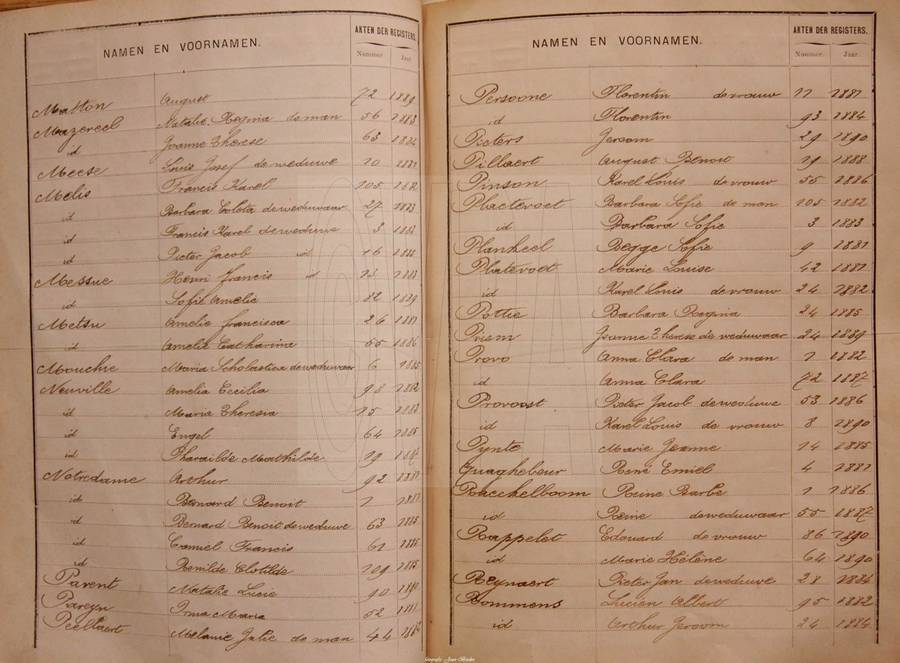 NAMEN EN VOORNAMEN. AKTEN DER REGISTERS.
Nummer. Jaar.
Matton August 72 1889
Mazereel Natalie Regina de man 56 1883
id Joanne Therese 63
Meese Louis Josef de weduwe 10
Melis Francis Karel 105
id Barbara Colota de weduwaar 27 1883
id Francis Karel de weduwe 3
id Pieter Jacob id 16
Messue Henri Francis id
id Sofie Amelie 82 1889
Metsu Amelie Francisca 26 1881
id Amelie Catharine 55 1886
Mouchie Maria Scholastica de weduwaar 6 1885
Neuville Amelia Cecilia 98 1882
id Maria Theresia 15
id Engel 64 1885
id Pharailde Mathilde 19
Notredame Arthur 92
id Bernard Benoit 1
id Bernard Benoit de weduwe 63 1885
id Camiel Francis 61
id Romilde Clotilde 109
Parent Natalie Lucie 90 1890
Pareyn Irma Maria 52
Peellaert Melanie Julie de man 44
NAMEN EN VOORNAMEN. AKTEN DER REGISTERS.
Nummer. Jaar.
Persoone Florentin de vrouw 11 1881
id Florentin 93 1884
Pieters Jeroom 29 1890
Pillaert August Benoit 19 1888
Pinson Karel Louis de vrouw 55 1886
Plactevoet Barbara Sofie de man 105 1882
id Barbara Sofie 3 1883
Plankeel Begge Sofie 9 1881
Platevoet Marie Louise 42 1881
id Karel Louis de vrouw 24 1882
Pottie Barbara Regina 24 1885
Priem Joanne Therese de weduwaar 24 1889
Provo Anna Clara de man 1 1882
id Anna Clara 72 1887
Provoost Pieter Jacob de weduwe 53 1886
id Karel Louis de vrouw 8 1890
Pynte Marie Jeanne 14 1885
Quaghebeur René Emiel 4 1881
Raecchelboom Reine Barbe 1 1886
id Reine de weduwaar 55 1887
Rappelet Edouard de vrouw 86 1890
id Marie Hélène 64 1890
Reynaert Pieter Jan de weduwe 28 1886
Rommens Lucien Albert 95 1882
id Arthur Jeroom 24 1884